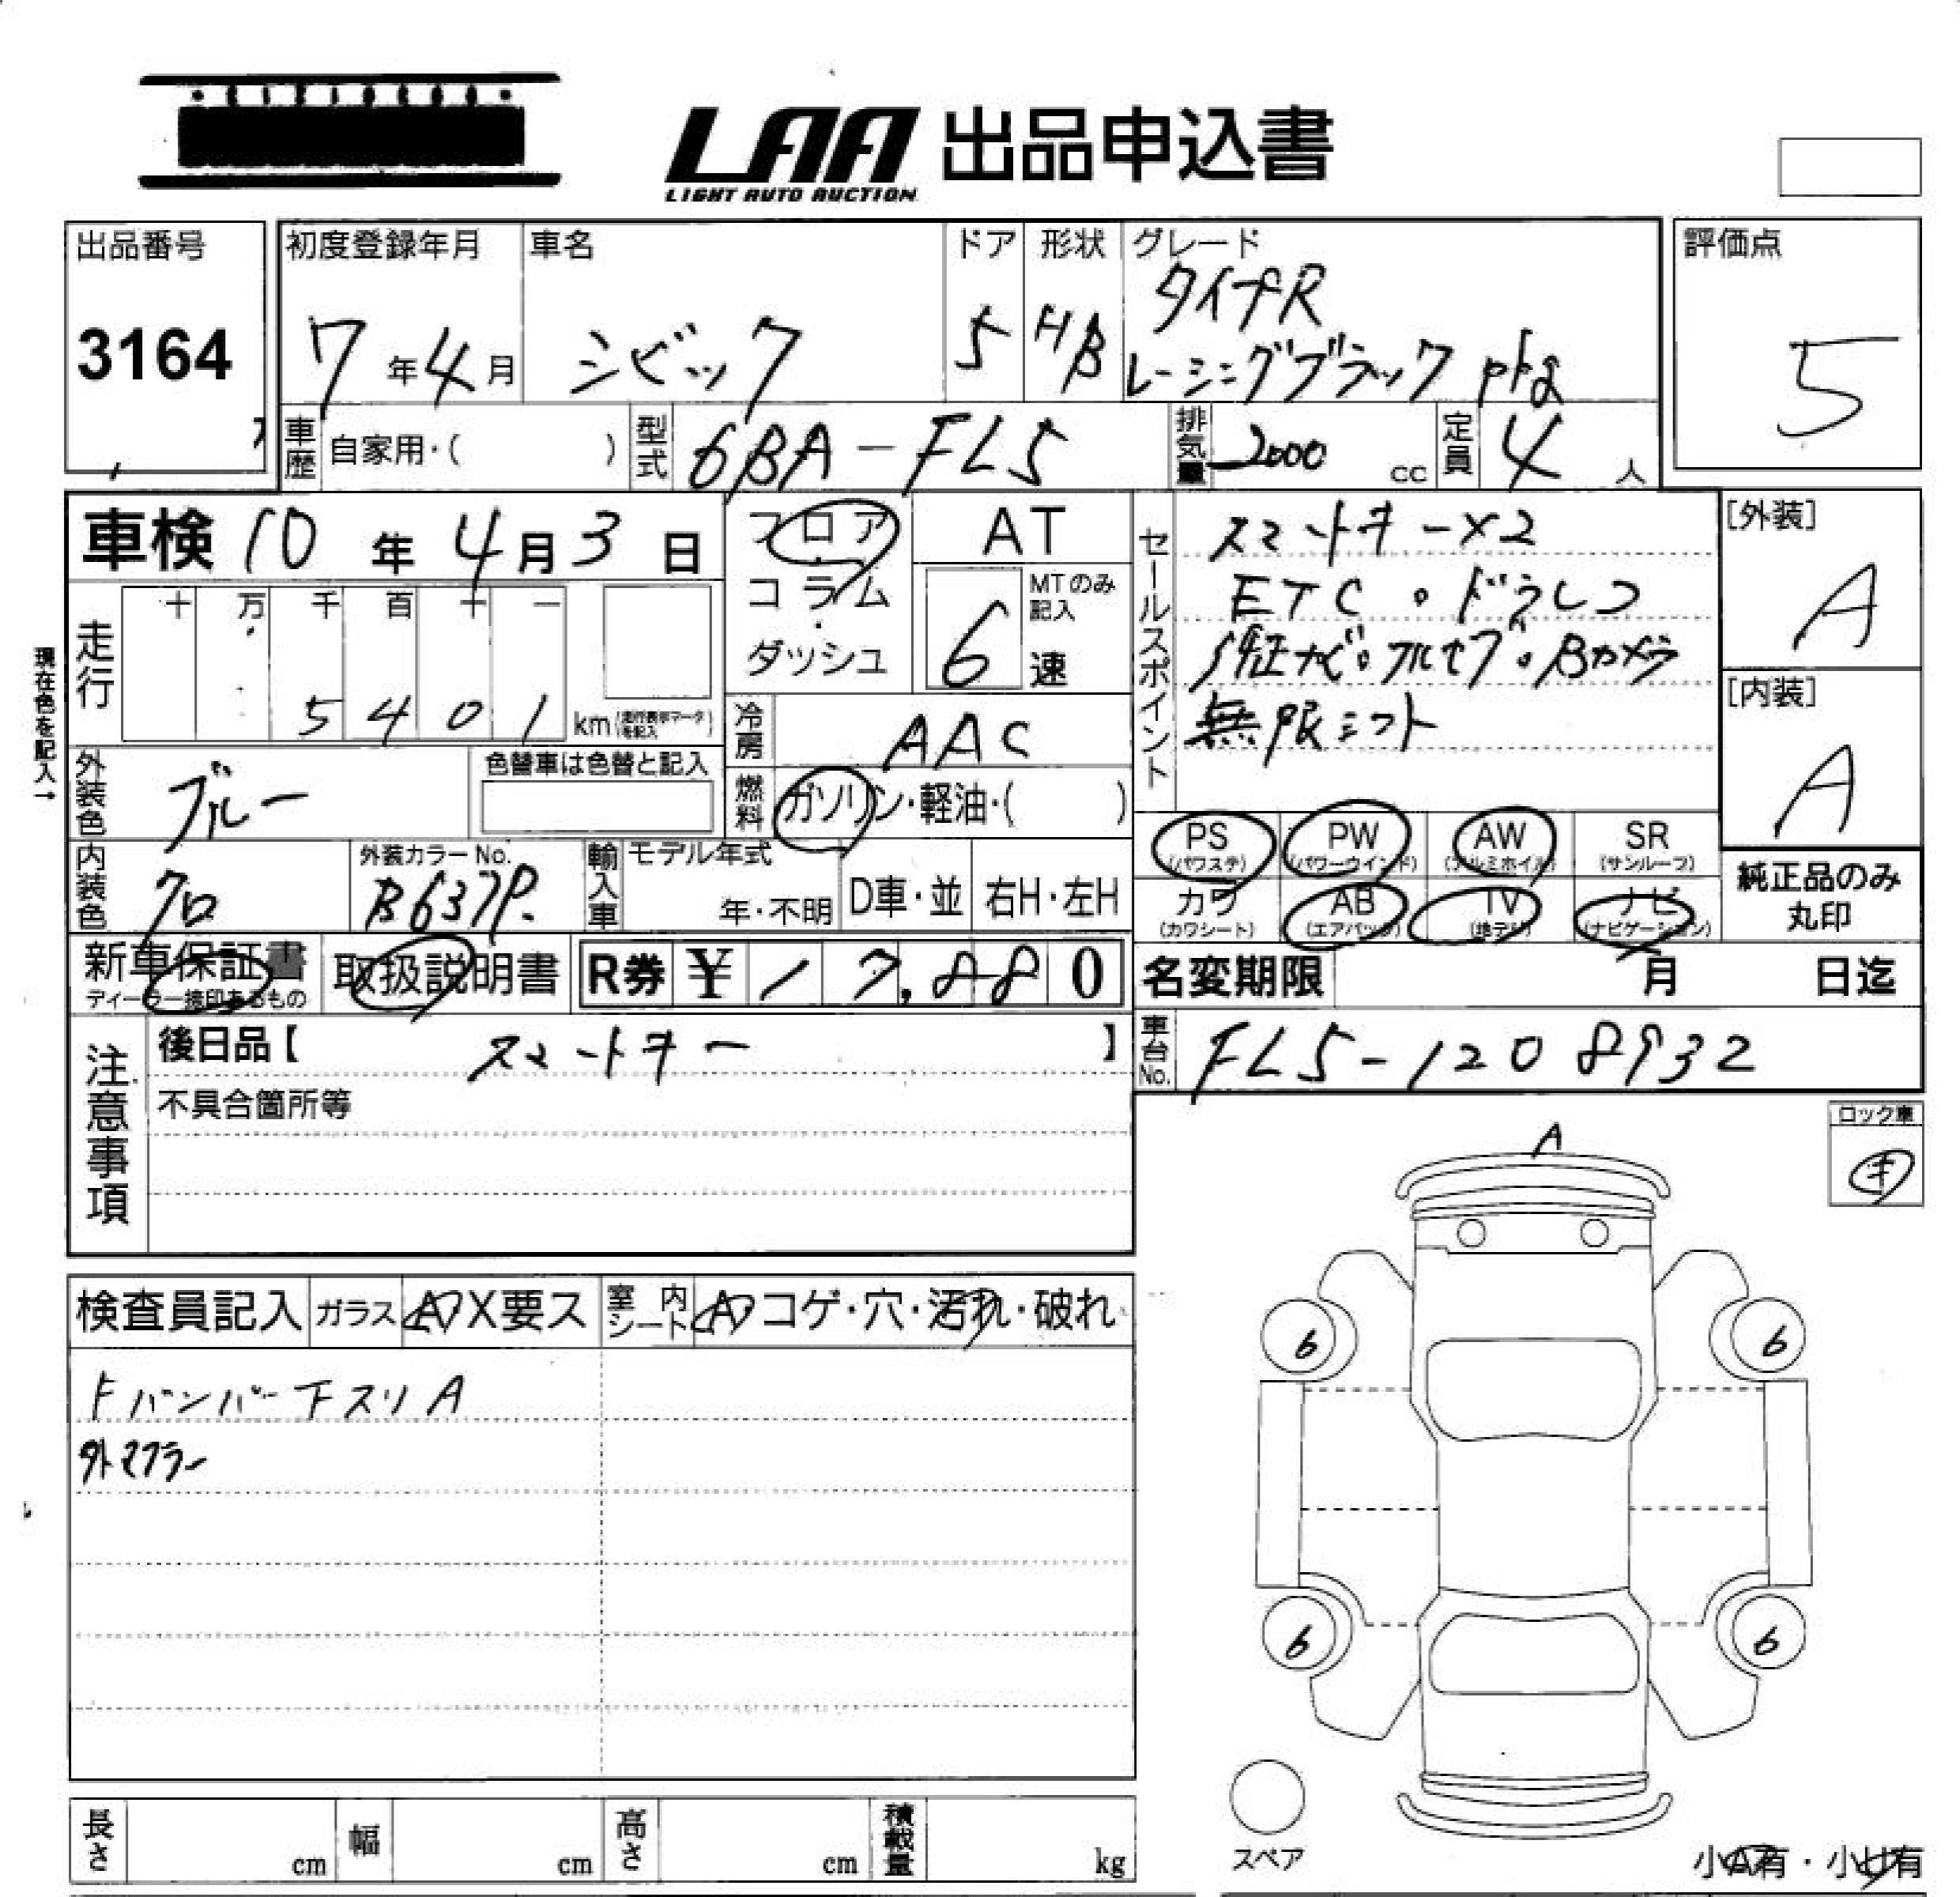 LAA 出品申込書
LIGHT AUTO AUCTION
出品番号
3164
初度登録年月
7年4月
車名
シビック
ドア
5
形状
HB
グレード
タイプR
レーシングブラック pkg
評価点
5
車歴 自家用・( )
型式 6BA-FL5
排気量 2000 cc
定員 4 人
車検 10年4月3日
フロア・コラム・ダッシュ
AT
MTのみ記入
6速
セールスポイント
スマートキー×2
ETC。ドラレコ
純正ナビ。フルセグ。Bカメラ
無限シフト
[外装]
A
[内装]
A
現在色を記入→
走行
十 万 千 百 十 一
5 4 0 1 km (走行表示マークを記入)
冷房 AAC
燃料 ガソリン・軽油・( )
外装色 ブルー
色替車は色替と記入
内装色 クロ
外装カラーNo.
B637P
輸入車 モデル年式
年・不明
D車・並
右H・左H
PS (パワステ)
PW (パワーウインド)
AW (アルミホイル)
SR (サンルーフ)
カワ (カワシート)
AB (エアバック)
TV (地デジ)
ナビ (ナビゲーション)
純正品のみ
丸印
新車保証書
ディーラー捺印あるもの
取扱説明書
R券 ¥ 17,880
名変期限 月 日迄
車台No. FL5-1208932
注意事項
後日品【 スマートキー 】
不具合箇所等
ロック車
キ
検査員記入
ガラス A・X要ス
室内シート A・コゲ・穴・汚れ・破れ
Fバンパー下スリA
外マフラー
A
6
6
6
6
スペア
小A有・小U有
長さ cm
幅 cm
高さ cm
積載量 kg